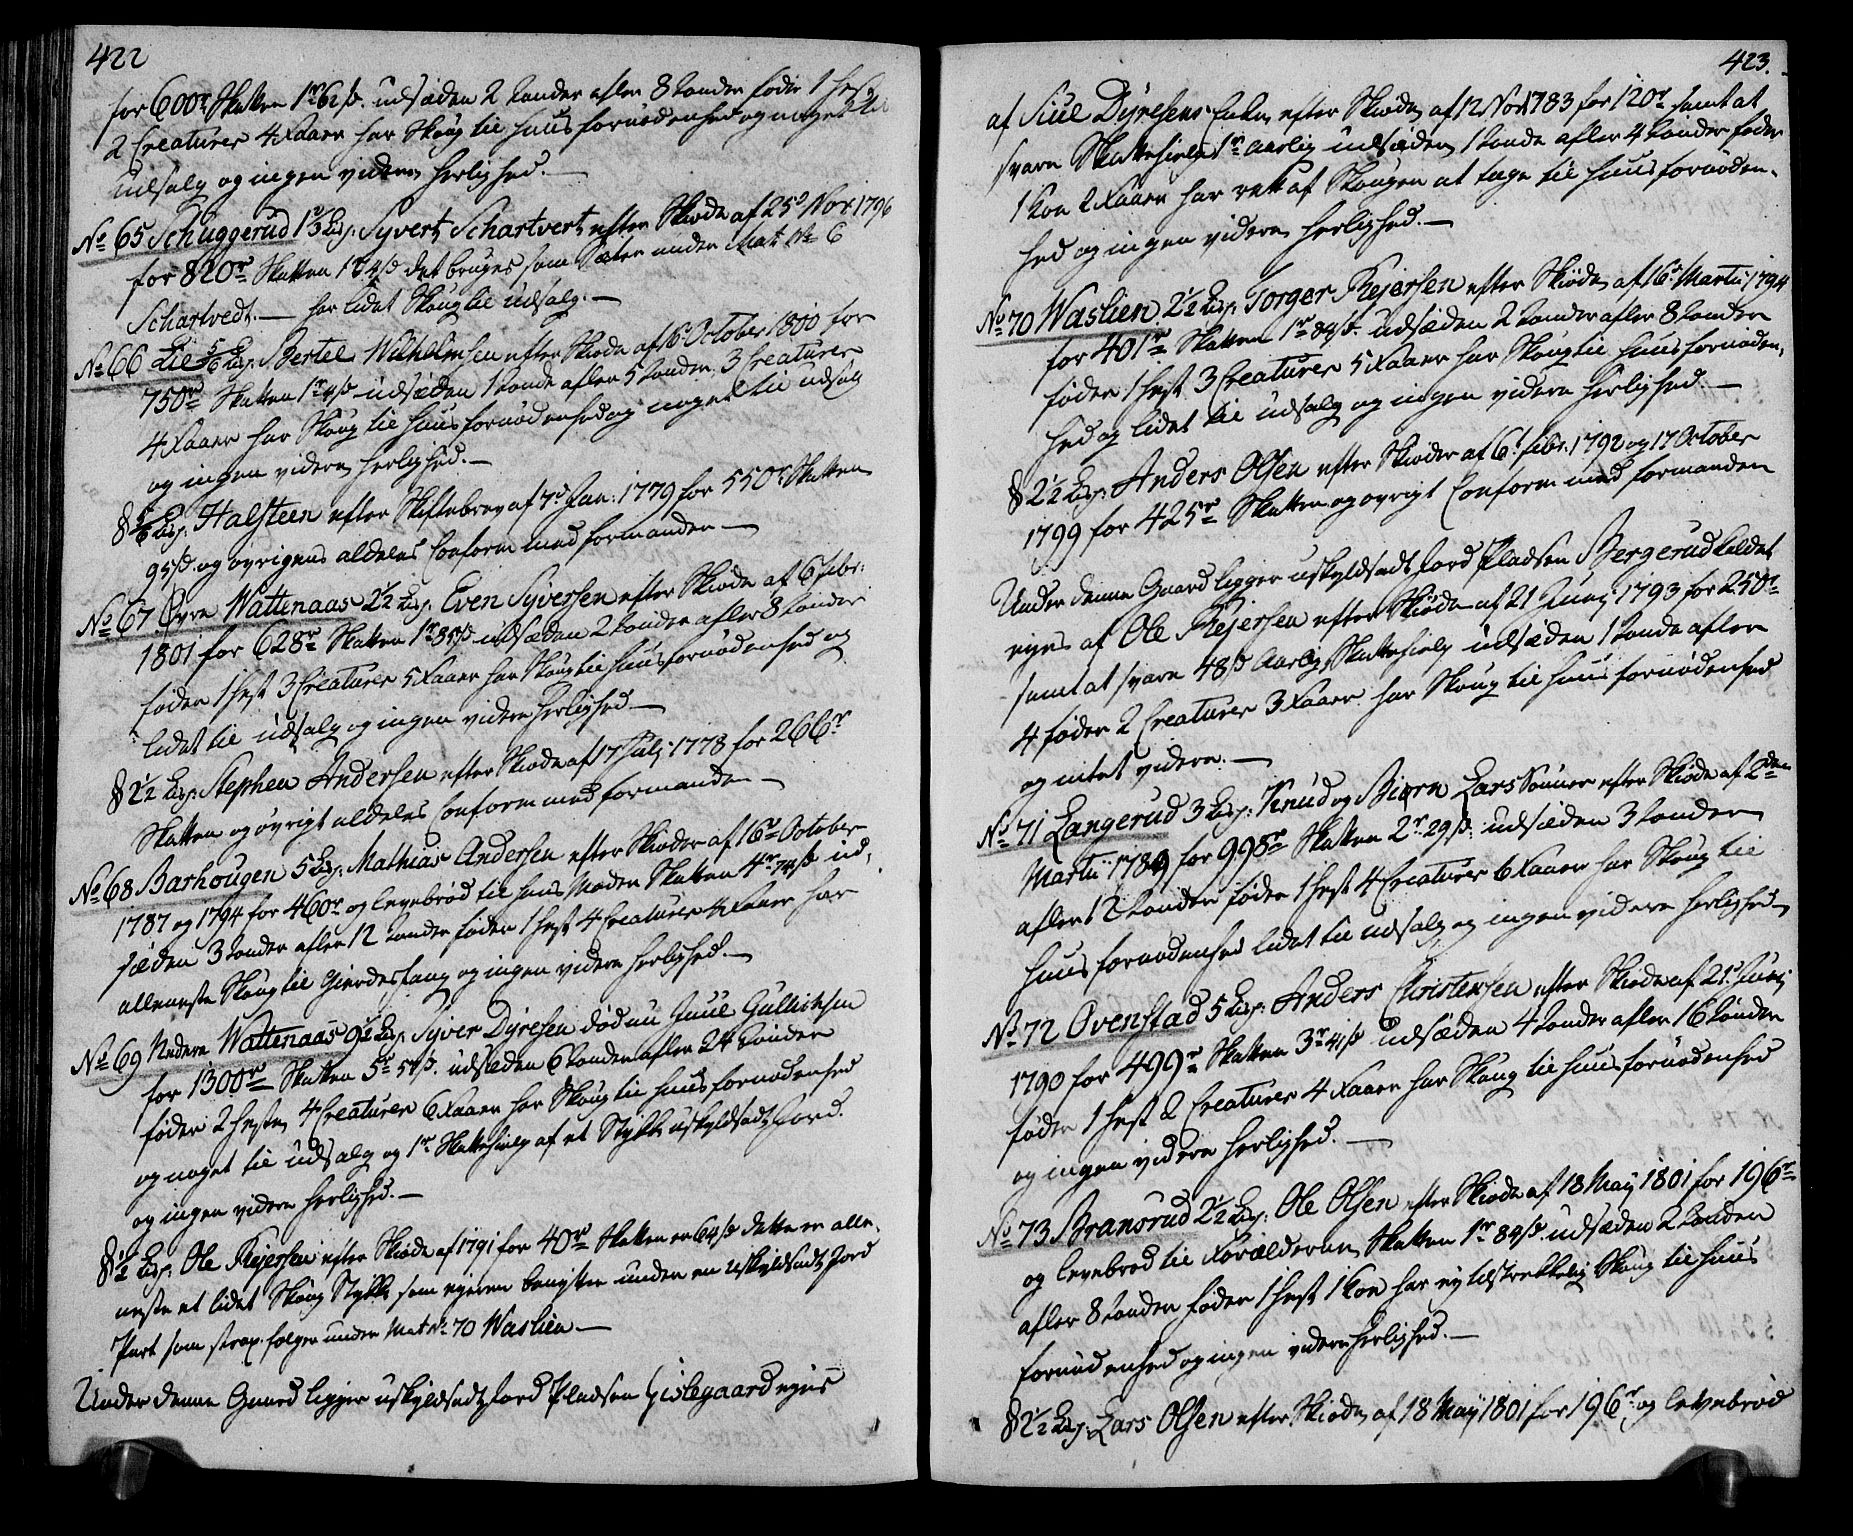 422
for 600r Skatten 1r 62/s. udsæden 2 tønder afler 8 tønder føder 1 hest
2 Creaturer 4 Faaer har Skoug til huusfornødenhed og noget til
udsalg og ingen videre herlighed.—
No 65 Schuggerud 1 3/8 Lisp. Syvert Schartvert efter Skiøde af 25d Nov: 1796
for 820r Skatten 1r 4/s det bruges som Sæter under Mat. No 6
Schartvedt.— har lidet Skoug til udsalg.—
No 66 Lie 5/6 Lisp. Bertel Wilhelmsen efter Skiøde af 6. October 1800 for
750r Skatten 1r 4/s udsæden 1 tønde afler 5 tønder, 3 Creaturer
4 Faaer har Skoug til huusfornødenhed og noget til udsalg
og ingen videre herlighed.—
§ 5/6 Lisp. Halsteen efter Skiftebrev af 7d Jan: 1779 for 550r Skatten
95/s og øvrigens aldeles Conform med formanden —
No 67. Øvre Wattenaas 2½ Lisp. Even Syversen efter Skiøde af 6 febr:
1801 for 628r Skatten 1r 84/s udsæden 2 tønder afler 8 tønder
føder 1 hest 3 Creaturer 5 Faaer har Skoug til huusfornødenhed og
lidet til udsalg og ingen videre herlighed.—
§ 2½ Lisp. Stephen Andersen efter Skiøde af 17 Julj 1778 for 266r
Skatten og øvrigt aldeles Conform med formanden —
No 68. Barhougen 5 Lisp. Mathias Andersen efter Skiøder af 16d October
1787 og 1794 for 460r og levebrød til hans Moder Skatten 4r 74/s ud,
sæden 3 tønder afler 12 tønder føder 1 hest 4 Creaturer 4 Faaer har
alleneste Skoug til Gierdesfang og ingen videre herlighed.—
No 69 Nedere Wattenaas 9½ Lisp. Syver Dyresen død nu Juul Gullichsen
for 1300r Skatten 5r 54/s. udsæden 6 tønder afler 24 tønder
føder 2 heste 4 Creaturer 6 Faaer har Skoug til huusfornødenhed
og noget til udsalg og 1r Skattehielp af et Stykke uskyldsadt Jord.
og ingen videre herlighed.—
§ ½ Lisp. Ole Rejersen efter Skiøde af 1791 for 40r Skatten er 64/s dette er alle,
neste et lidet Skoug Stykke som ejeren benytter under en uskyldsadt Jord
Part som strax følger under Mat No 70 Waslien.—
Under denne Gaard ligger uskyldsadt Jord Pladsen Gislegaard ejes
423.
af Siul Dyresens Enke efter Skiøde af 12 Nov 1783 for 120r samt at
svare Skattehielp 1r Aarlig udsæden 1 tønde afler 4 tønder føder
1 Koe 2 Faaer har rett af Skougen at tage til huusfornøden,
hed og ingen videre herlighed.—
No 70 Waslien 2½ Lisp. Torger Rejersen efter Skiøde af 16d Martii 1794
for 401r Skatten 1r 84/s. udsæden 2 tønder afler 8 tønder
føder 1 hest 3 Creaturer 5 Faaer har Skoug til huusfornøden,
hed og lidet til udsalg og ingen videre herlighed.—
§ 2½ Lisp. Anders Olsen efter Skiøder af 6d febr: 1792 og 17 October
1799 for 425r Skatten og øvrigt Conform med formanden
Under denne Gaard ligger uskyldsadt Jord Pladsen Bergerud kaldet
ejes af Ole Rejersen efter Skiøde af 21 Junj 1793 for 250r
samt at svare 48/s Aarlig Skattehielp udsæden 1 tønde afler
4 føder 2 Creaturer 3 Faaer har Skoug til huusfornødenhed
og intet videre.—
No 71 Langerud 3 Lisp. Knud og Biørn Lars Sønner efter Skiøde af 2den
Martii 1789 for 998r Skatten 2r 29/s. udsæden 3 tønder
afler 12 tønder føder 1 hest 4 Creaturer 6 Faaer har Skoug til
huusfornødenhed lidet til udsalg og ingen videre herlighed
No 72 Ovenstad 5 Lisp. Anders Christensen efter Skiøde af 21d Junj
1790 for 499r Skatten 3r 41/s udsæden 4 tønder afler 16 tønder
føder 1 hest 2 Creaturer 4 Faaer har Skoug til huusfornødenhed
og ingen videre herlighed.—
No 73. Bransrud 2½ Lisp. Ole Olsen efter Skiøde af 18 May 1801 for 196r
og levebrød til Forælderne, Skatten 1r 84/s. udsæden 2 tønder
afler 8 tønder føder 1 hest 1 Koe har ey tilstrekkelig Skoug til huus
fornødenhed og ingen videre herlighed.—
§ 2½ Lisp. Lars Olsen efter Skiøde af 18 May 1801 for 196r og levebrød